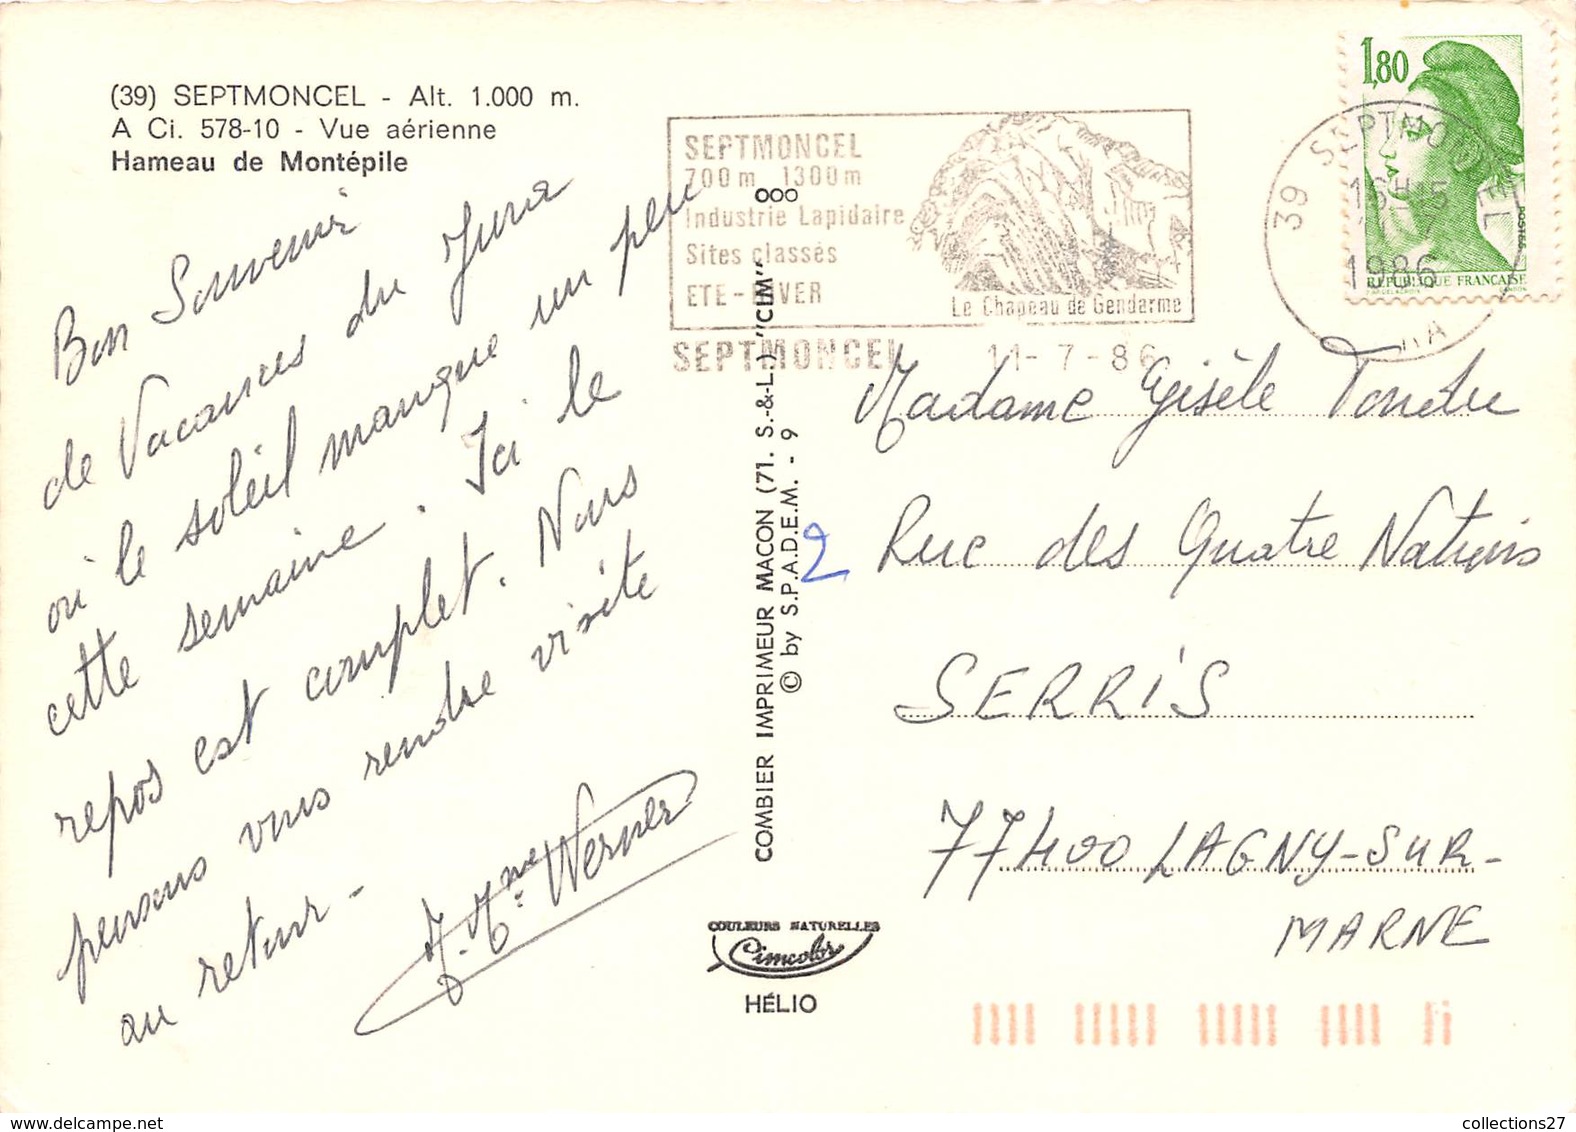 (39) SEPTMONCEL - Alt. 1.000 m.
A Ci. 578-10 - Vue aérienne
Hameau de Montépile
Bon Souvenir
de Vacances du Jura
où le soleil manque un peu
cette semaine. Ici le
repos est complet. Nous
pensons vous rendre visite
au retour -
Mme Werner
COMBIER IMPRIMEUR MACON (71. S.-&-L.) "CIM"
© by S.P.A.D.E.M. - 9
COULEURS NATURELLES
Cimcolor
HÉLIO
SEPTMONCEL
700m 1300m
Industrie Lapidaire
Sites classés
ETE - HIVER
Le Chapeau de Gendarme
SEPTMONCEL 11-7-86
39 SEPTMONCEL
16H15
1986
JURA
1,80
POSTES
REPUBLIQUE FRANÇAISE
Madame Gisèle Tondu
2 Rue des Quatre Nations
SERRIS
77400 LAGNY-SUR-
MARNE
collections27